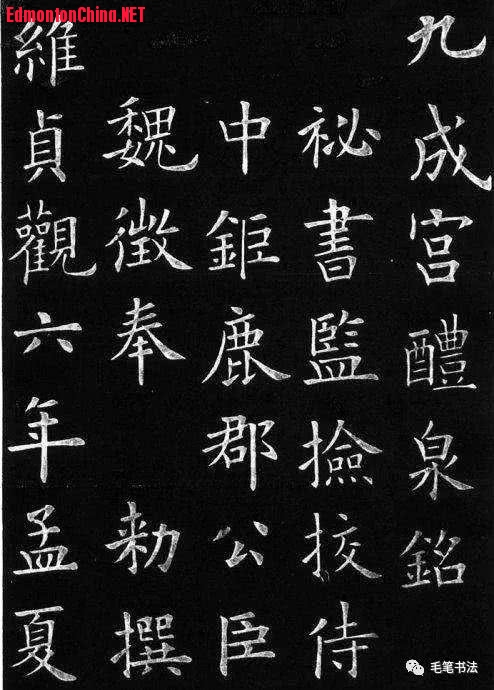 EdmontonChina.NET
九成宮醴泉銘
祕書監撿挍侍
中鉅鹿郡公臣
魏徵奉敕撰
維貞觀六年孟夏
毛笔书法